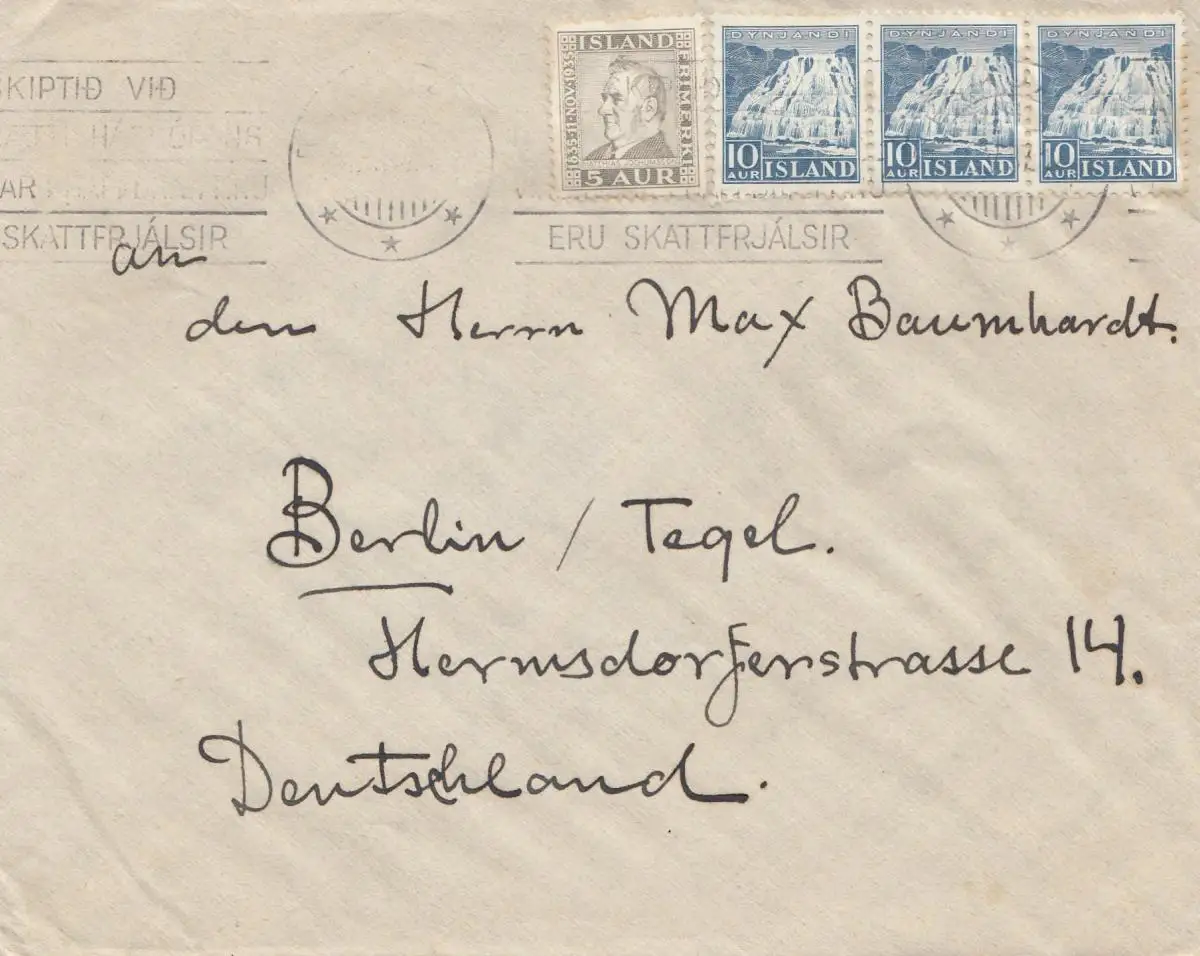 SKIPTIÐ VIÐ
SKATTFRJÁLSIR
ERU SKATTFRJÁLSIR
ISLAND
FRIMERKI
1835-11·NOV·1935
MATTHÍAS JOCHUMSSON
5 AUR
DYNJANDI
10 AUR ISLAND
DYNJANDI
10 AUR ISLAND
DYNJANDI
10 AUR ISLAND
an
den Herrn Max Baumhardt.
Berlin / Tegel.
Hermsdorferstrasse 14.
Deutschland.